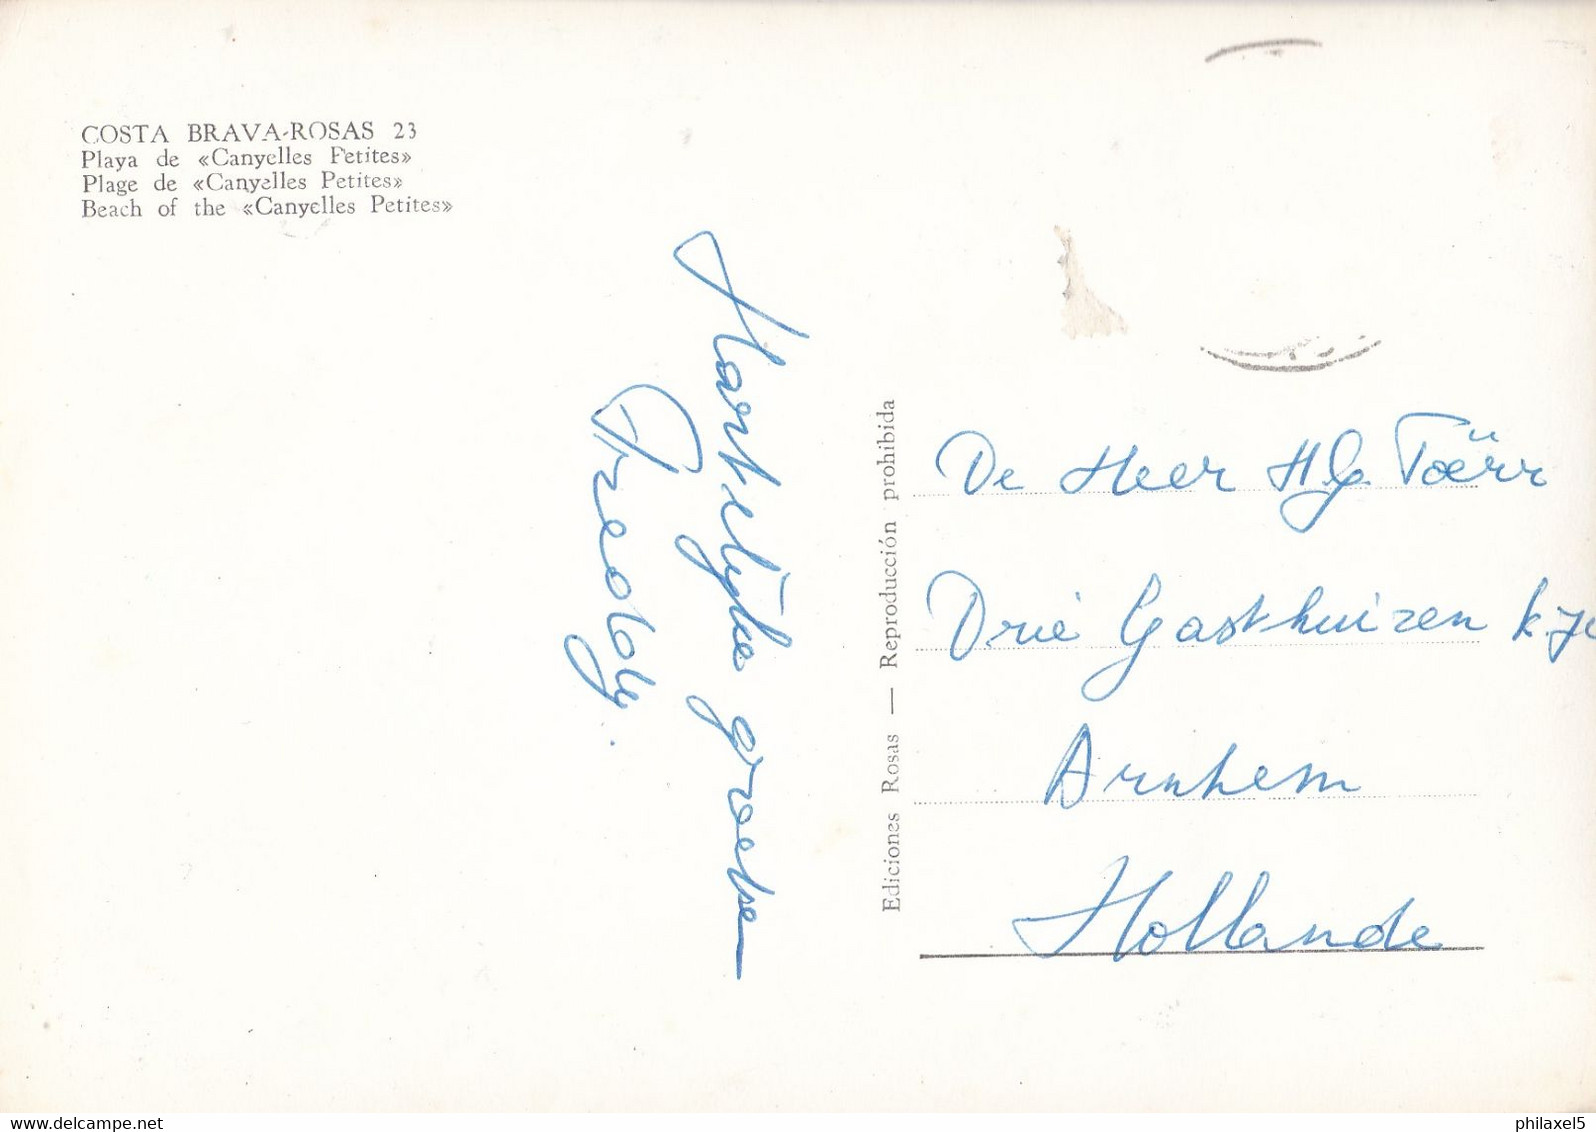 COSTA BRAVA-ROSAS 23
Playa de «Canyelles Petites»
Plage de «Canyelles Petites»
Beach of the «Canyelles Petites»
Hartelijke groeten
Freddy.
Ediciones Rosas — Reproducción prohibida
De Heer HG
Drie Gasthuizen
Arnhem
Hollande
www.delcampe.net
philaxel5